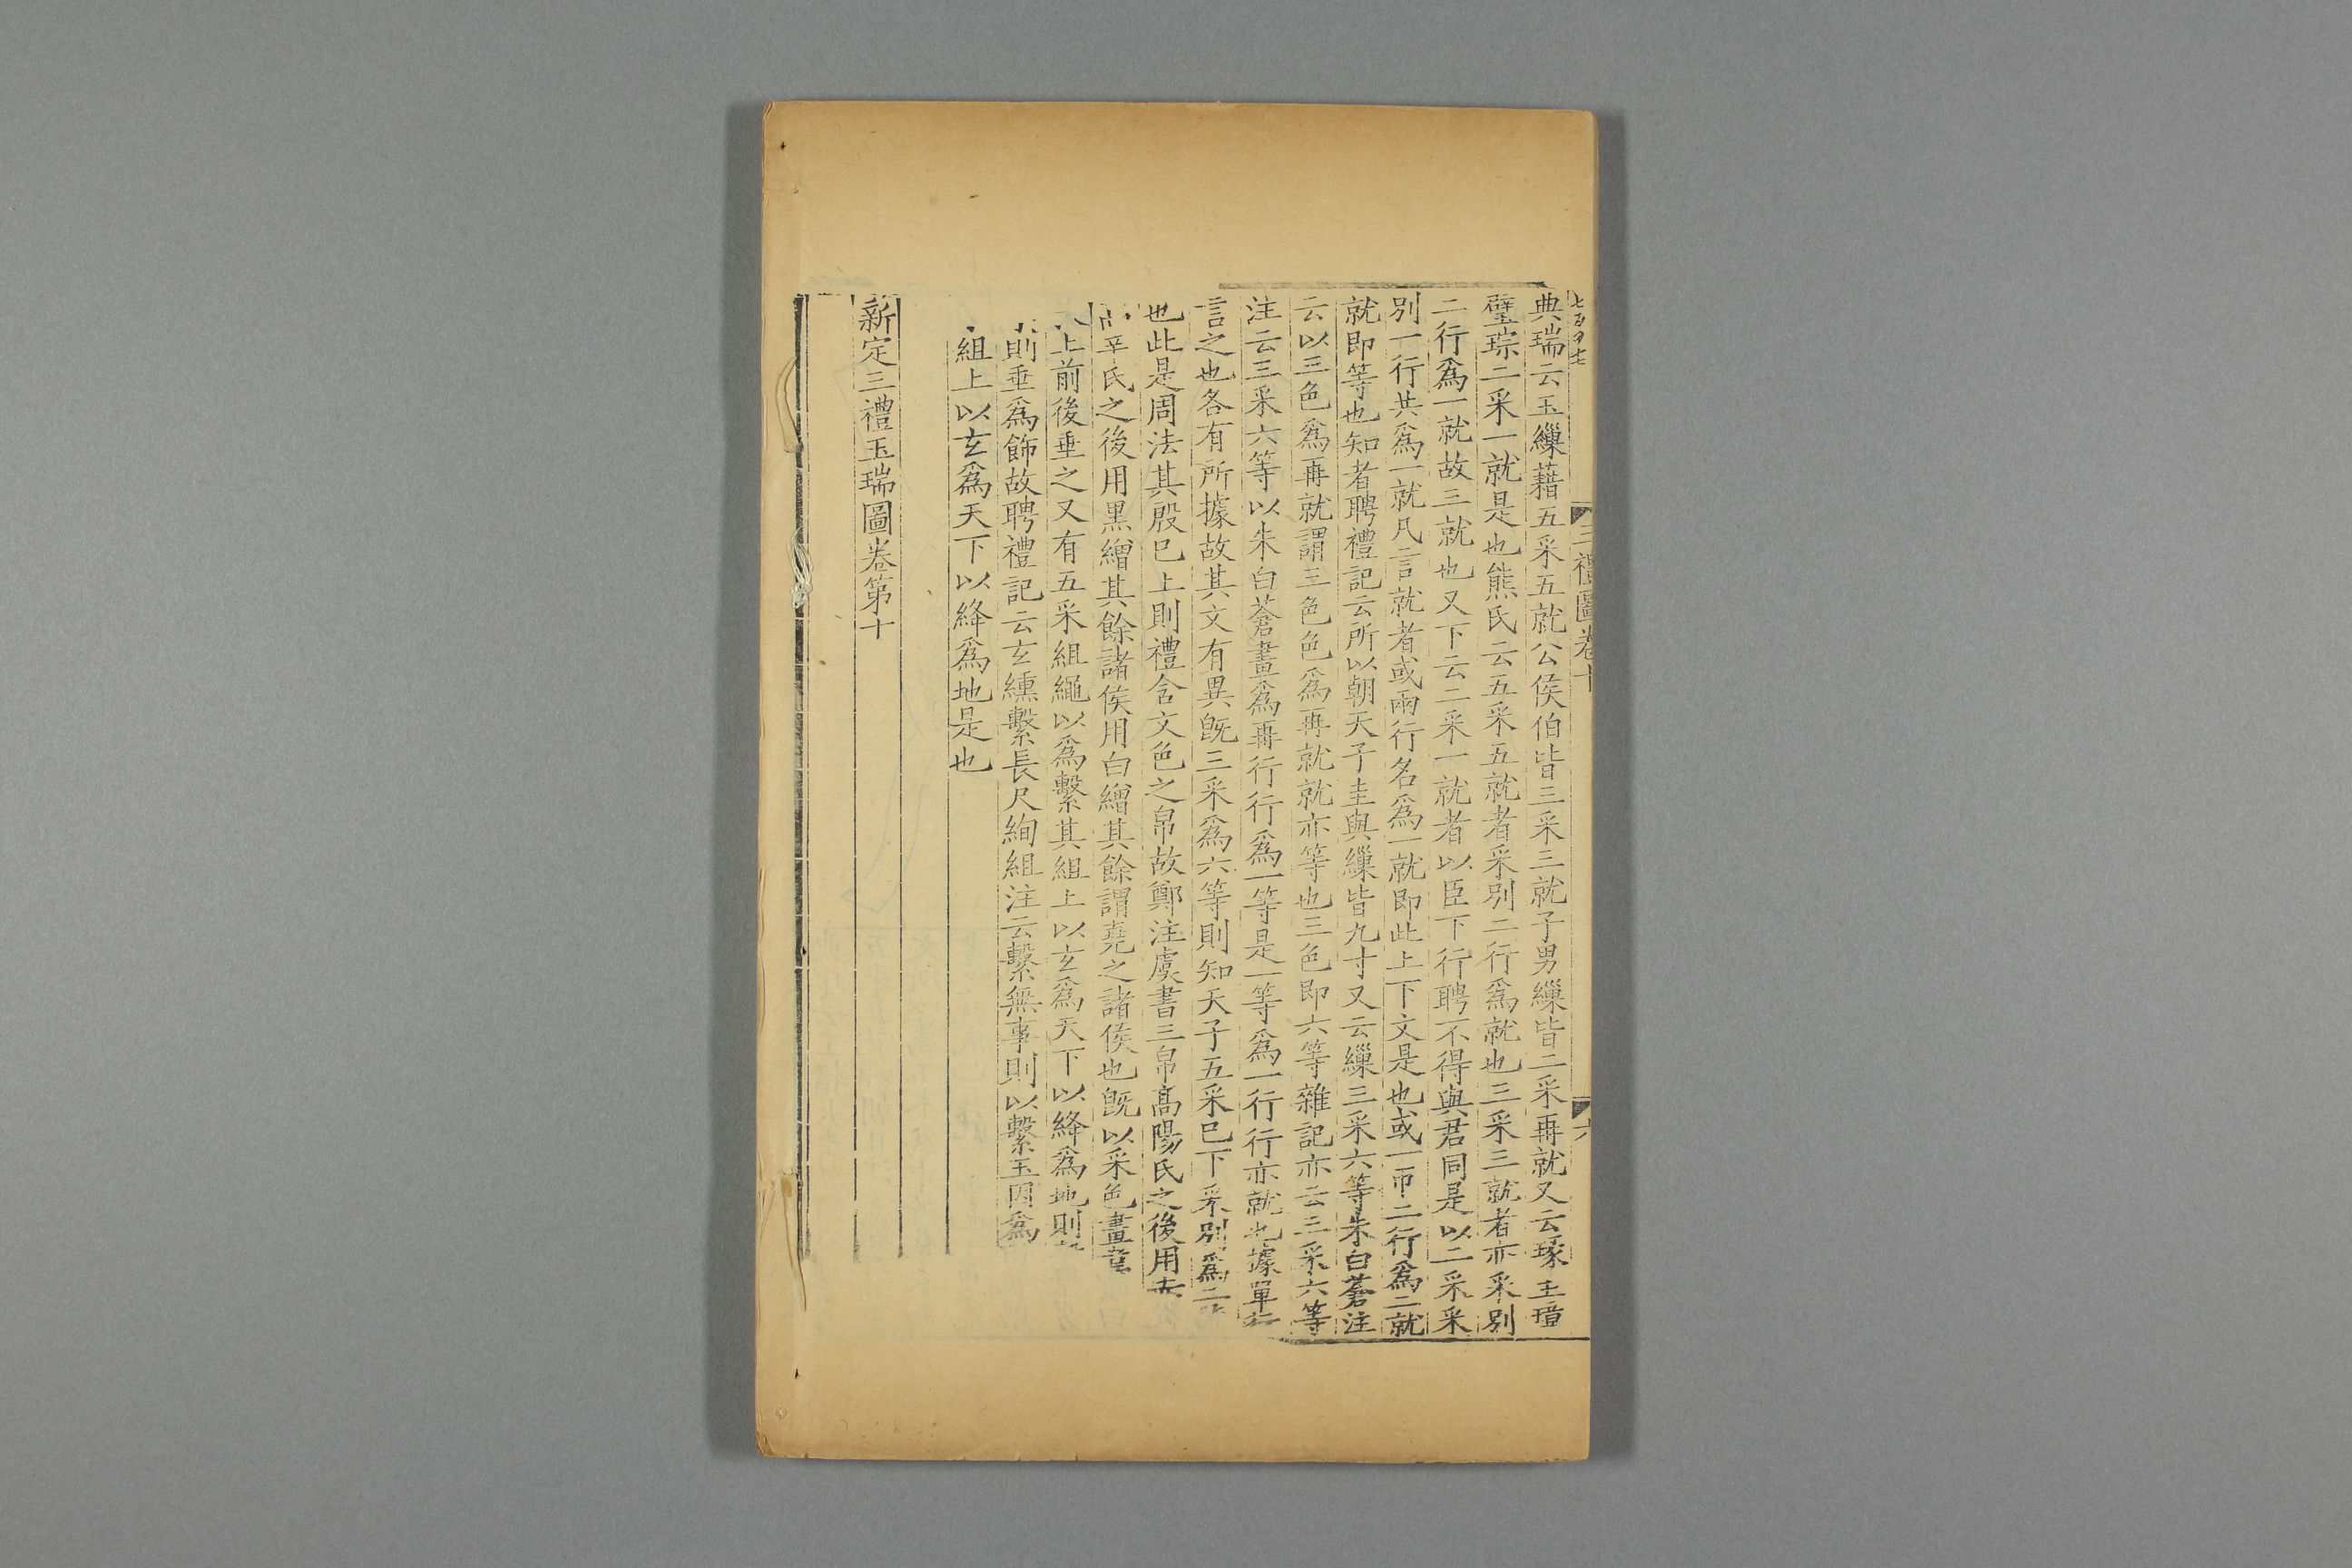 三禮圖卷十
六
典瑞云玉繅藉五采五就公侯伯皆三采三就子男繅皆二采再就又云瑑圭璋
璧琮二采一就是也熊氏云五采五就者采別二行爲就也三采三就者亦采別
二行爲一就故三就也又下云二采一就者以臣下行聘不得與君同是以二采采
別一行共爲一就凡言就者或兩行名爲一就即此上下文是也或一帀二行爲二就
就即等也知者聘禮記云所以朝天子圭與繅皆九寸又云繅三采六等朱白蒼注
云以三色爲再就謂三色色爲再就就亦等也三色即六等雜記亦云三采六等
注云三采六等以朱白蒼畫爲再行行爲一等是一等爲一行行亦就也據單
言之也各有所據故其文有異旣三采爲六等則知天子五采巳下采別爲二
也此是周法其殷巳上則禮含文色之帛故鄭注虞書三帛髙陽氏之後用赤
辛氏之後用黒繒其餘諸侯用白繒其餘謂堯之諸侯也旣以采色畫韋
上前後垂之又有五采組繩以爲繫其組上以玄爲天下以絳爲地則
則垂爲飾故聘禮記云玄纁繫長尺絢組注云繫無事則以繫玉因爲
組上以玄爲天下以絳爲地是也
新定三禮玉瑞圖卷第十